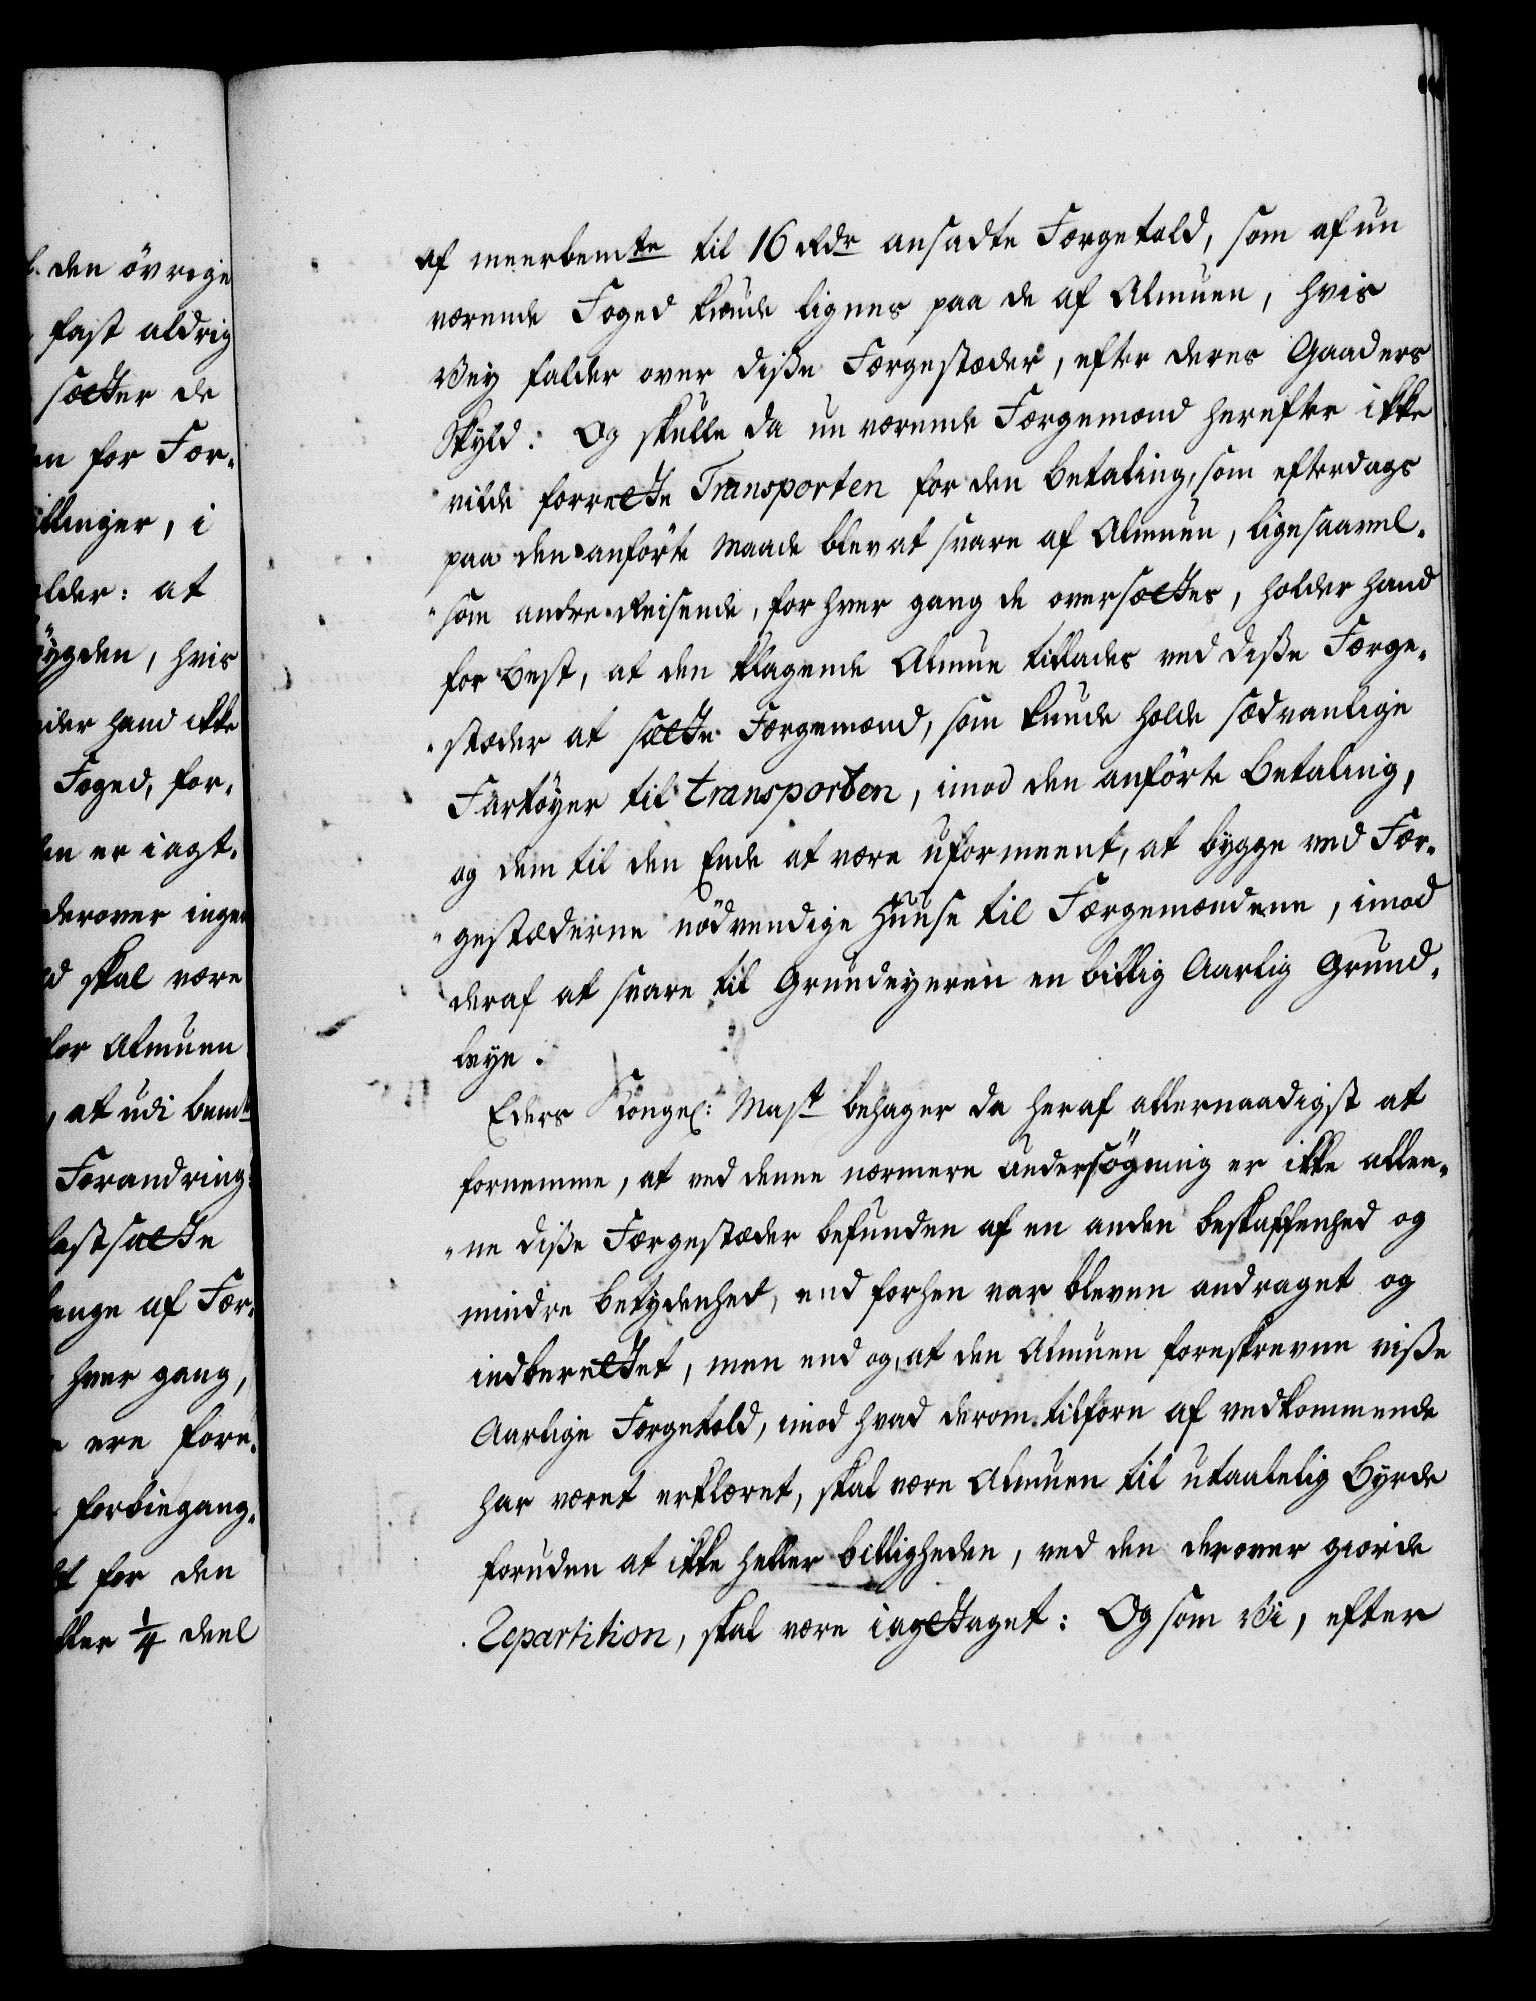 l. den övrige
fast aldrig
sætter de
en for Fær-
illinger, i
ælder: at
bygden, hvis
eider hand ikke
Foged, for-
en er iagt-
derover ingen
d skal være
for Almuen
, at udi bemte
Forandring:
fastsatte
længe af Fær-
hver gang,
ere fore-
forbiegang-
et for den
eller ¼ deel
af meerbemte til 16 Rdr ansadte Færgetold, som af nu
værende Foged kunde lignes paa de af Almuen, hvis
Vey falder over diße Færgestæder, efter deres Gaarders
Skyld: Og skulle da nu værende Færgemænd herefter ikke
vilde forrette Transporten for den Betaling, som efterdags
paa den anförte Maade blev at svare af Almuen, ligesaavel-
"som andre Reisende, for hver gang de oversættes, holder hand
for best, at den klagende Almue tillades ved diße Færge-
"stæder at sætte Færgemænd, som kunde holde sædvanlige
Fartöyer til transporten, imod den anförte Betaling,
og dem til den Ende at være uformeent, at bygge ved Fær-
"gestæderne nödvendige Huuse til Færgemændene, imod
deraf at svare til Grundeyeren en billig Aarlig Grund-
leye.
Eders Kongel: Mayt behager da heraf allernaadigst at
fornemme, at ved denne nærmere Undersögning er ikke alleo-
"ne diße Færgestæder befunden af en anden beskaffenhed og
mindre Betydenhed, end forhen var bleven andraget og
indberettet, men end og, at den Almuen foreskrevne viße
Aarlige Færgetold, imod hvad derom tilforn af vedkommende
har været erklæret, skal være Almuen til utaalelig Byrde
foruden at ikke heller billigheden, ved den derover giorde
Repartition, skal være iagttaget: Og som Vi, efter